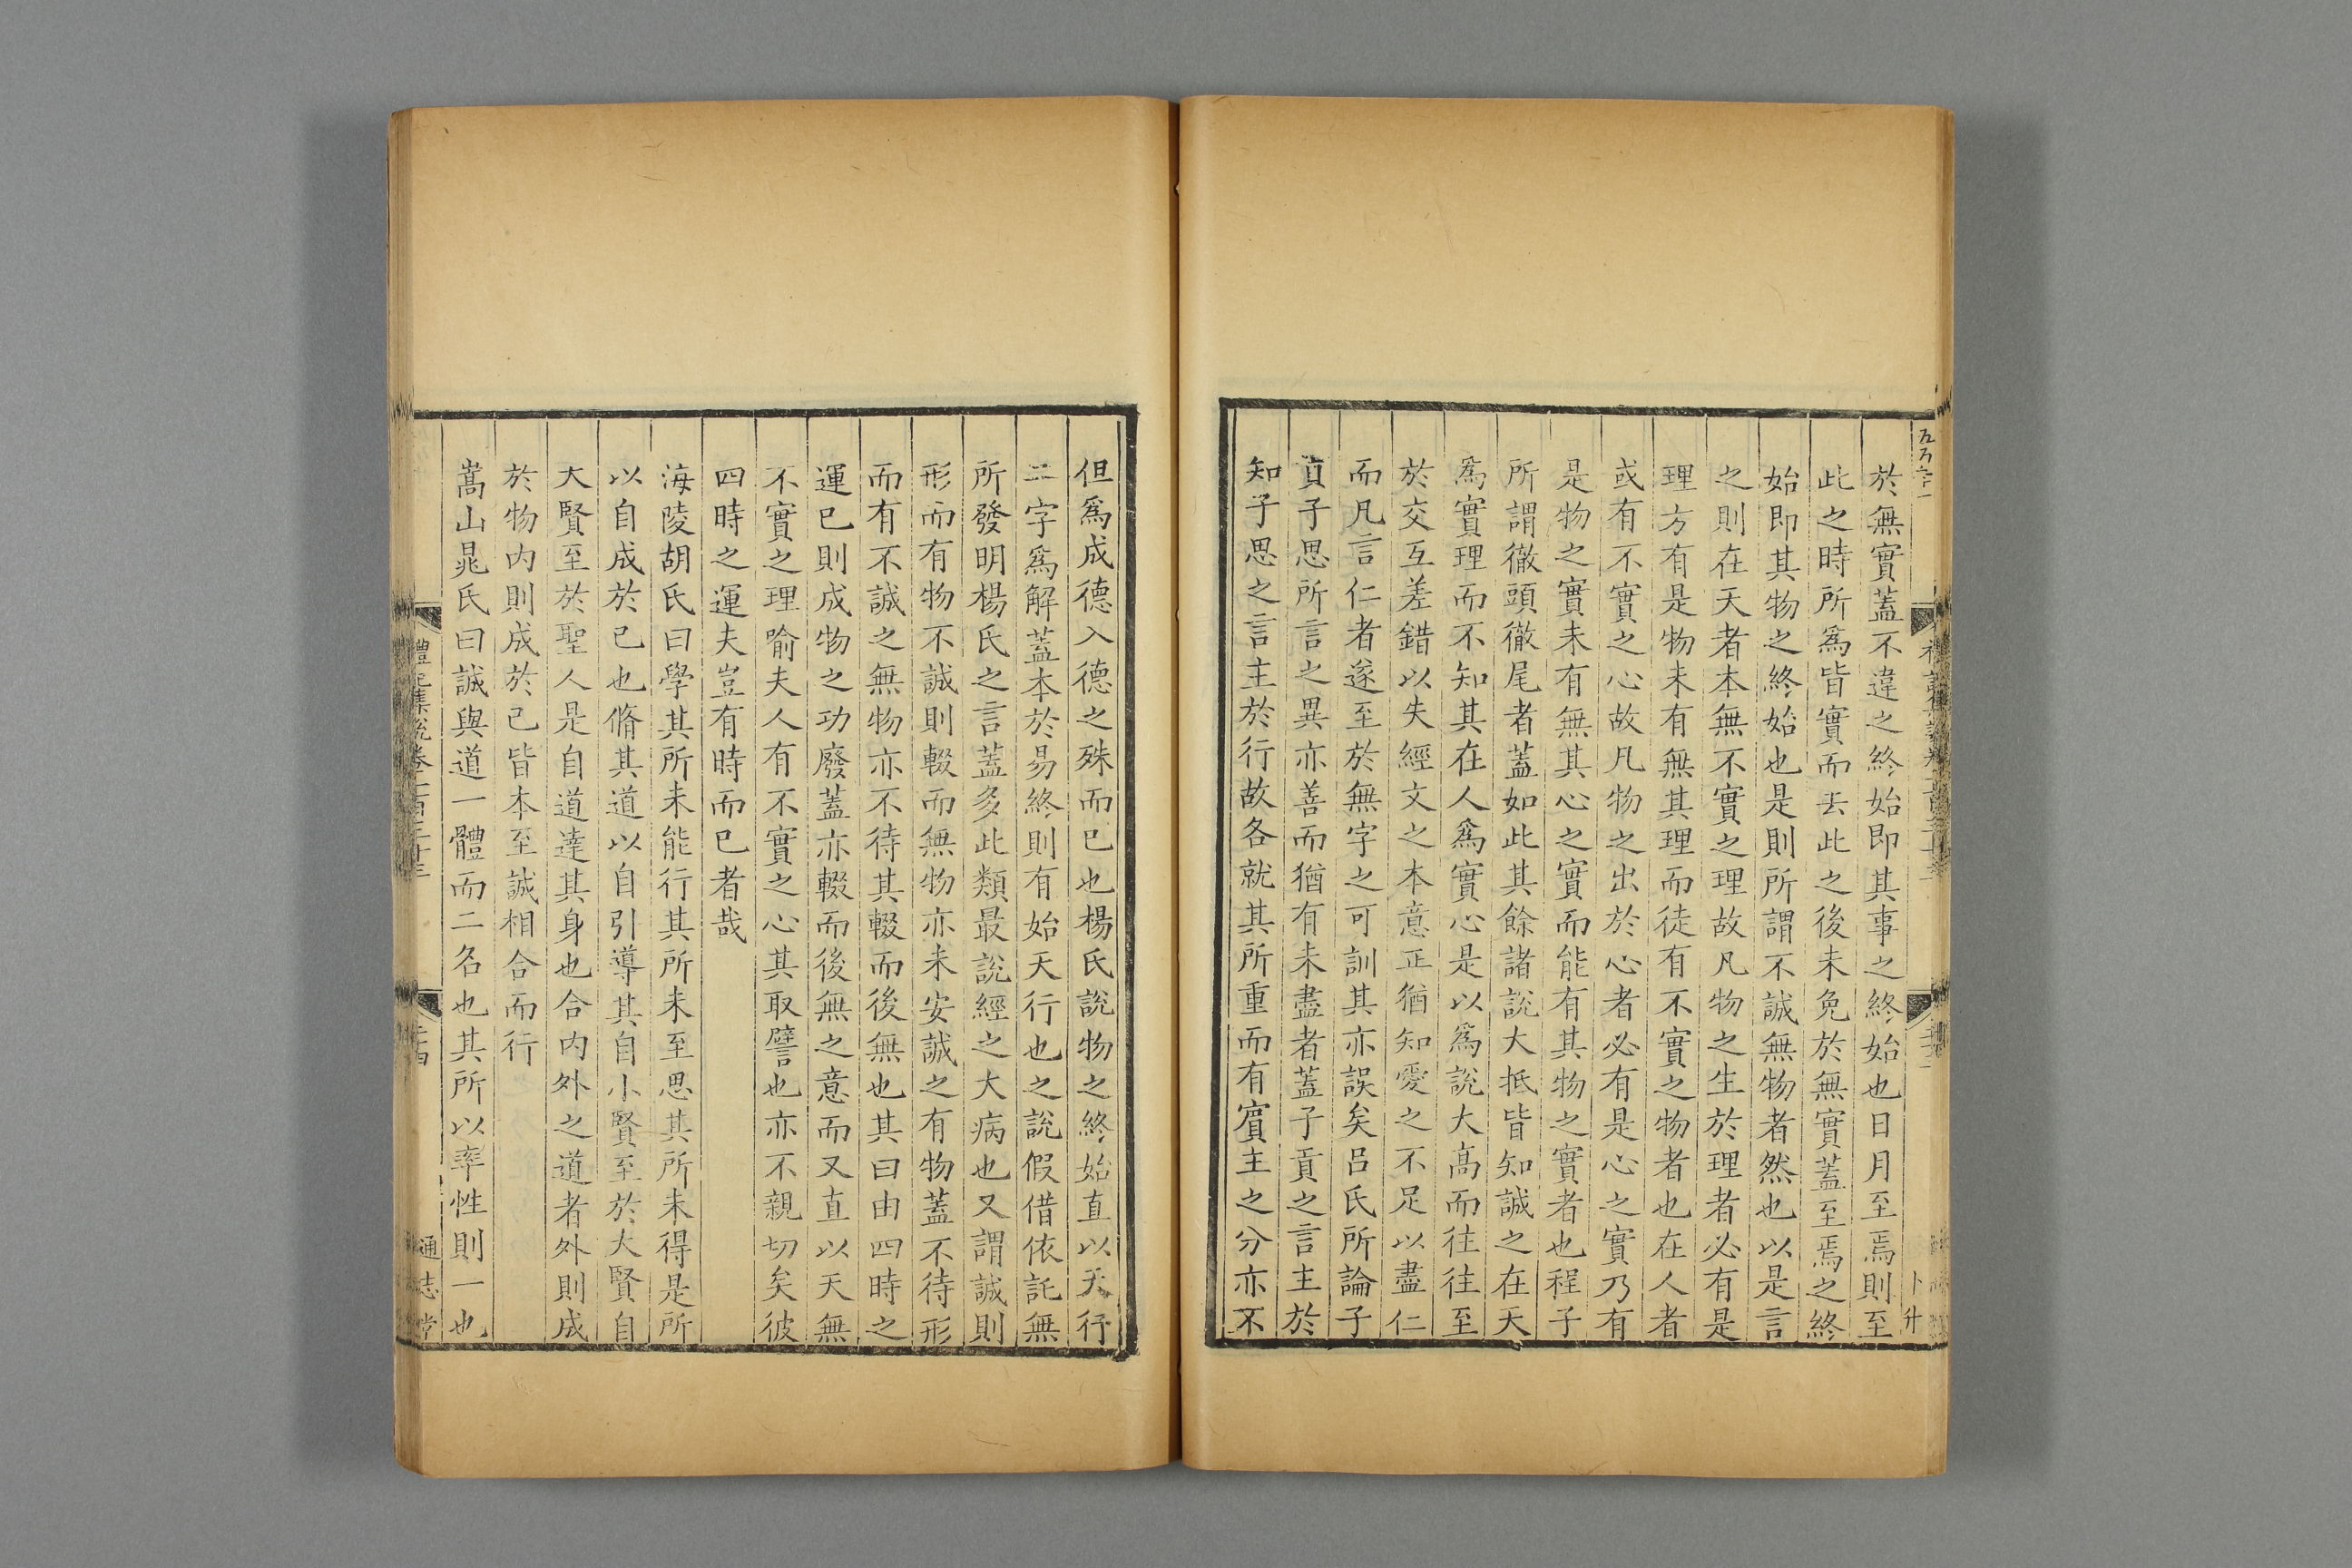 於無實蓋不違之終始即其事之終始也日月至焉則至
此之時所爲皆實而去此之後未免於無實蓋至焉之終
始即其物之終始也是則所謂不誠無物者然也以是言
之則在天者本無不實之理故凡物之生於理者必有是
理方有是物未有無其理而徒有不實之物者也在人者
或有不實之心故凡物之出於心者必有是心之實乃有
是物之實未有無其心之實而能有其物之實者也程子
所謂徹頭徹尾者蓋如此其餘諸說大抵皆知誠之在天
爲實理而不知其在人爲實心是以爲說大高而往往至
於交互差錯以失經文之本意正猶知愛之不足以盡仁
而凡言仁者遂至於無字之可訓其亦誤矣呂氏所論子
貢子思所言之異亦善而猶有未盡者蓋子貢之言主於
知子思之言主於行故各就其所重而有賓主之分亦不
但爲成德入德之殊而已也楊氏說物之終始直以天行
二字爲解蓋本於易終則有始天行也之說假借依託無
所發明楊氏之言蓋多此類最說經之大病也又謂誠則
形而有物不誠則輟而無物亦未安誠之有物蓋不待形
而有不誠之無物亦不待其輟而後無也其曰由四時之
運已則成物之功廢蓋亦輟而後無之意而又直以天無
不實之理喻夫人有不實之心其取譬也亦不親切矣彼
四時之運夫豈有時而已者哉
海陵胡氏曰學其所未能行其所未至思其所未得是所
以自成於己也脩其道以自引導其自小賢至於大賢自
大賢至於聖人是自道達其身也合内外之道者外則成
於物内則成於己皆本至誠相合而行
嵩山晁氏曰誠與道一體而二名也其所以率性則一也
通志堂
卜升